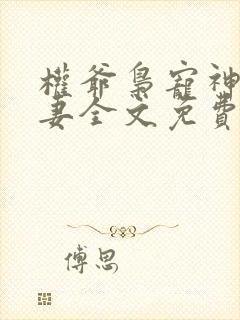 權爺梟寵神
妻全文免費
傅思